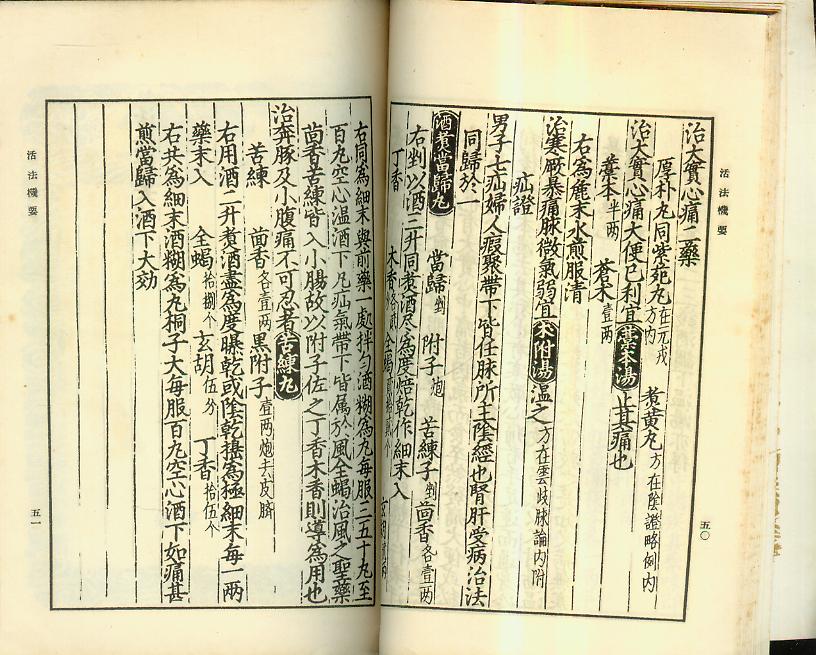 活法機要
五〇
治大實心痛二藥
厚朴丸同紫菀丸方在元戎內 煑黃丸方在陰證略例內
治大實心痛大便已利宜藁本湯止其痛也
藁本半兩 蒼朮壹兩
右為麄末水煎服清
治寒厥暴痛脉微氣弱宜朮附湯溫之方在雲歧脉論內附
疝證
男子七疝婦人瘕聚帶下皆任脉所主陰經也腎肝受病治法
同歸於一
酒煑當歸丸
當歸剉 附子炮 苦練子剉 茴香各壹兩
右剉以酒三升同煑酒尽為度焙乾作細末入
丁香 木香各 全蝎 玄胡
右同為細末與前藥一處拌勻酒糊為丸每服三五十丸至
百丸空心溫酒下凡疝氣帶下皆属於風全蝎治風之聖藥
茴香苦練皆入小腸故以附子佐之丁香木香則導為用也
治奔豚及小腹痛不可忍者苦練丸
苦練 茴香各壹兩 黑附子壹兩炮去皮臍
右用酒二升煑酒盡為度曝乾或陰乾搗為極細末每一兩
藥末入 全蝎拾捌个 玄胡伍分 丁香拾伍个
右共為細末酒糊為丸桐子大每服百丸空心酒下如痛甚
煎當歸入酒下大効
活法機要
五一